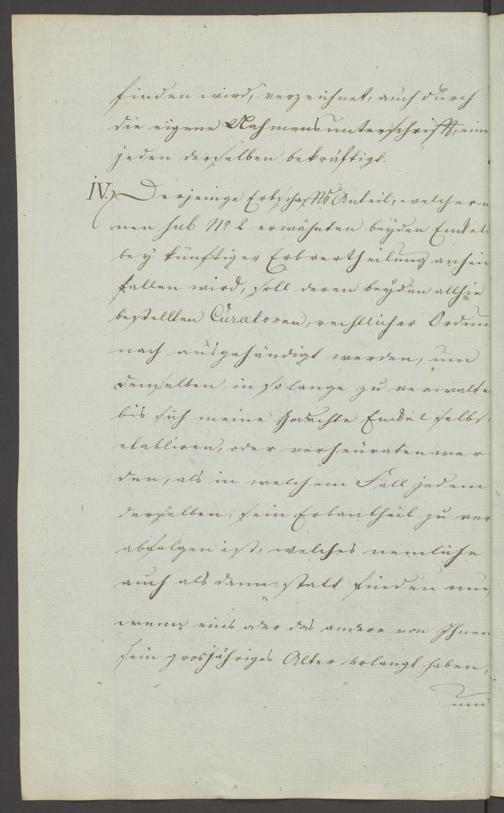 finden wird, verzeichnet, auch durch
die eigene Nahmensunterschrifft, eines
jeden derselben bekräftigt.
IV.) Derjenige Erbschaffts Anteil, welcher
nen sub No 2 erwähnten beyden Enkel
bey künftiger Erbvertheilung anheim
fallen wird, soll deren beyden allhie
bestellten Curatoren, rechtlicher Ordnun
nach ausgehändigt werden, um
denselben in so lange zu verwalte
bis sich meine gedachte Enkel selbst
etabliren, oder verheuraten wer
den, als in welchem Fall jedem
derselben, sein Erbantheil zu ver
abfolgen ist, welches nemliche
auch alsdann statt finden
wenn eins oder das andere von Ihnen
sein grosjähriges Alter erlangt haben,
und